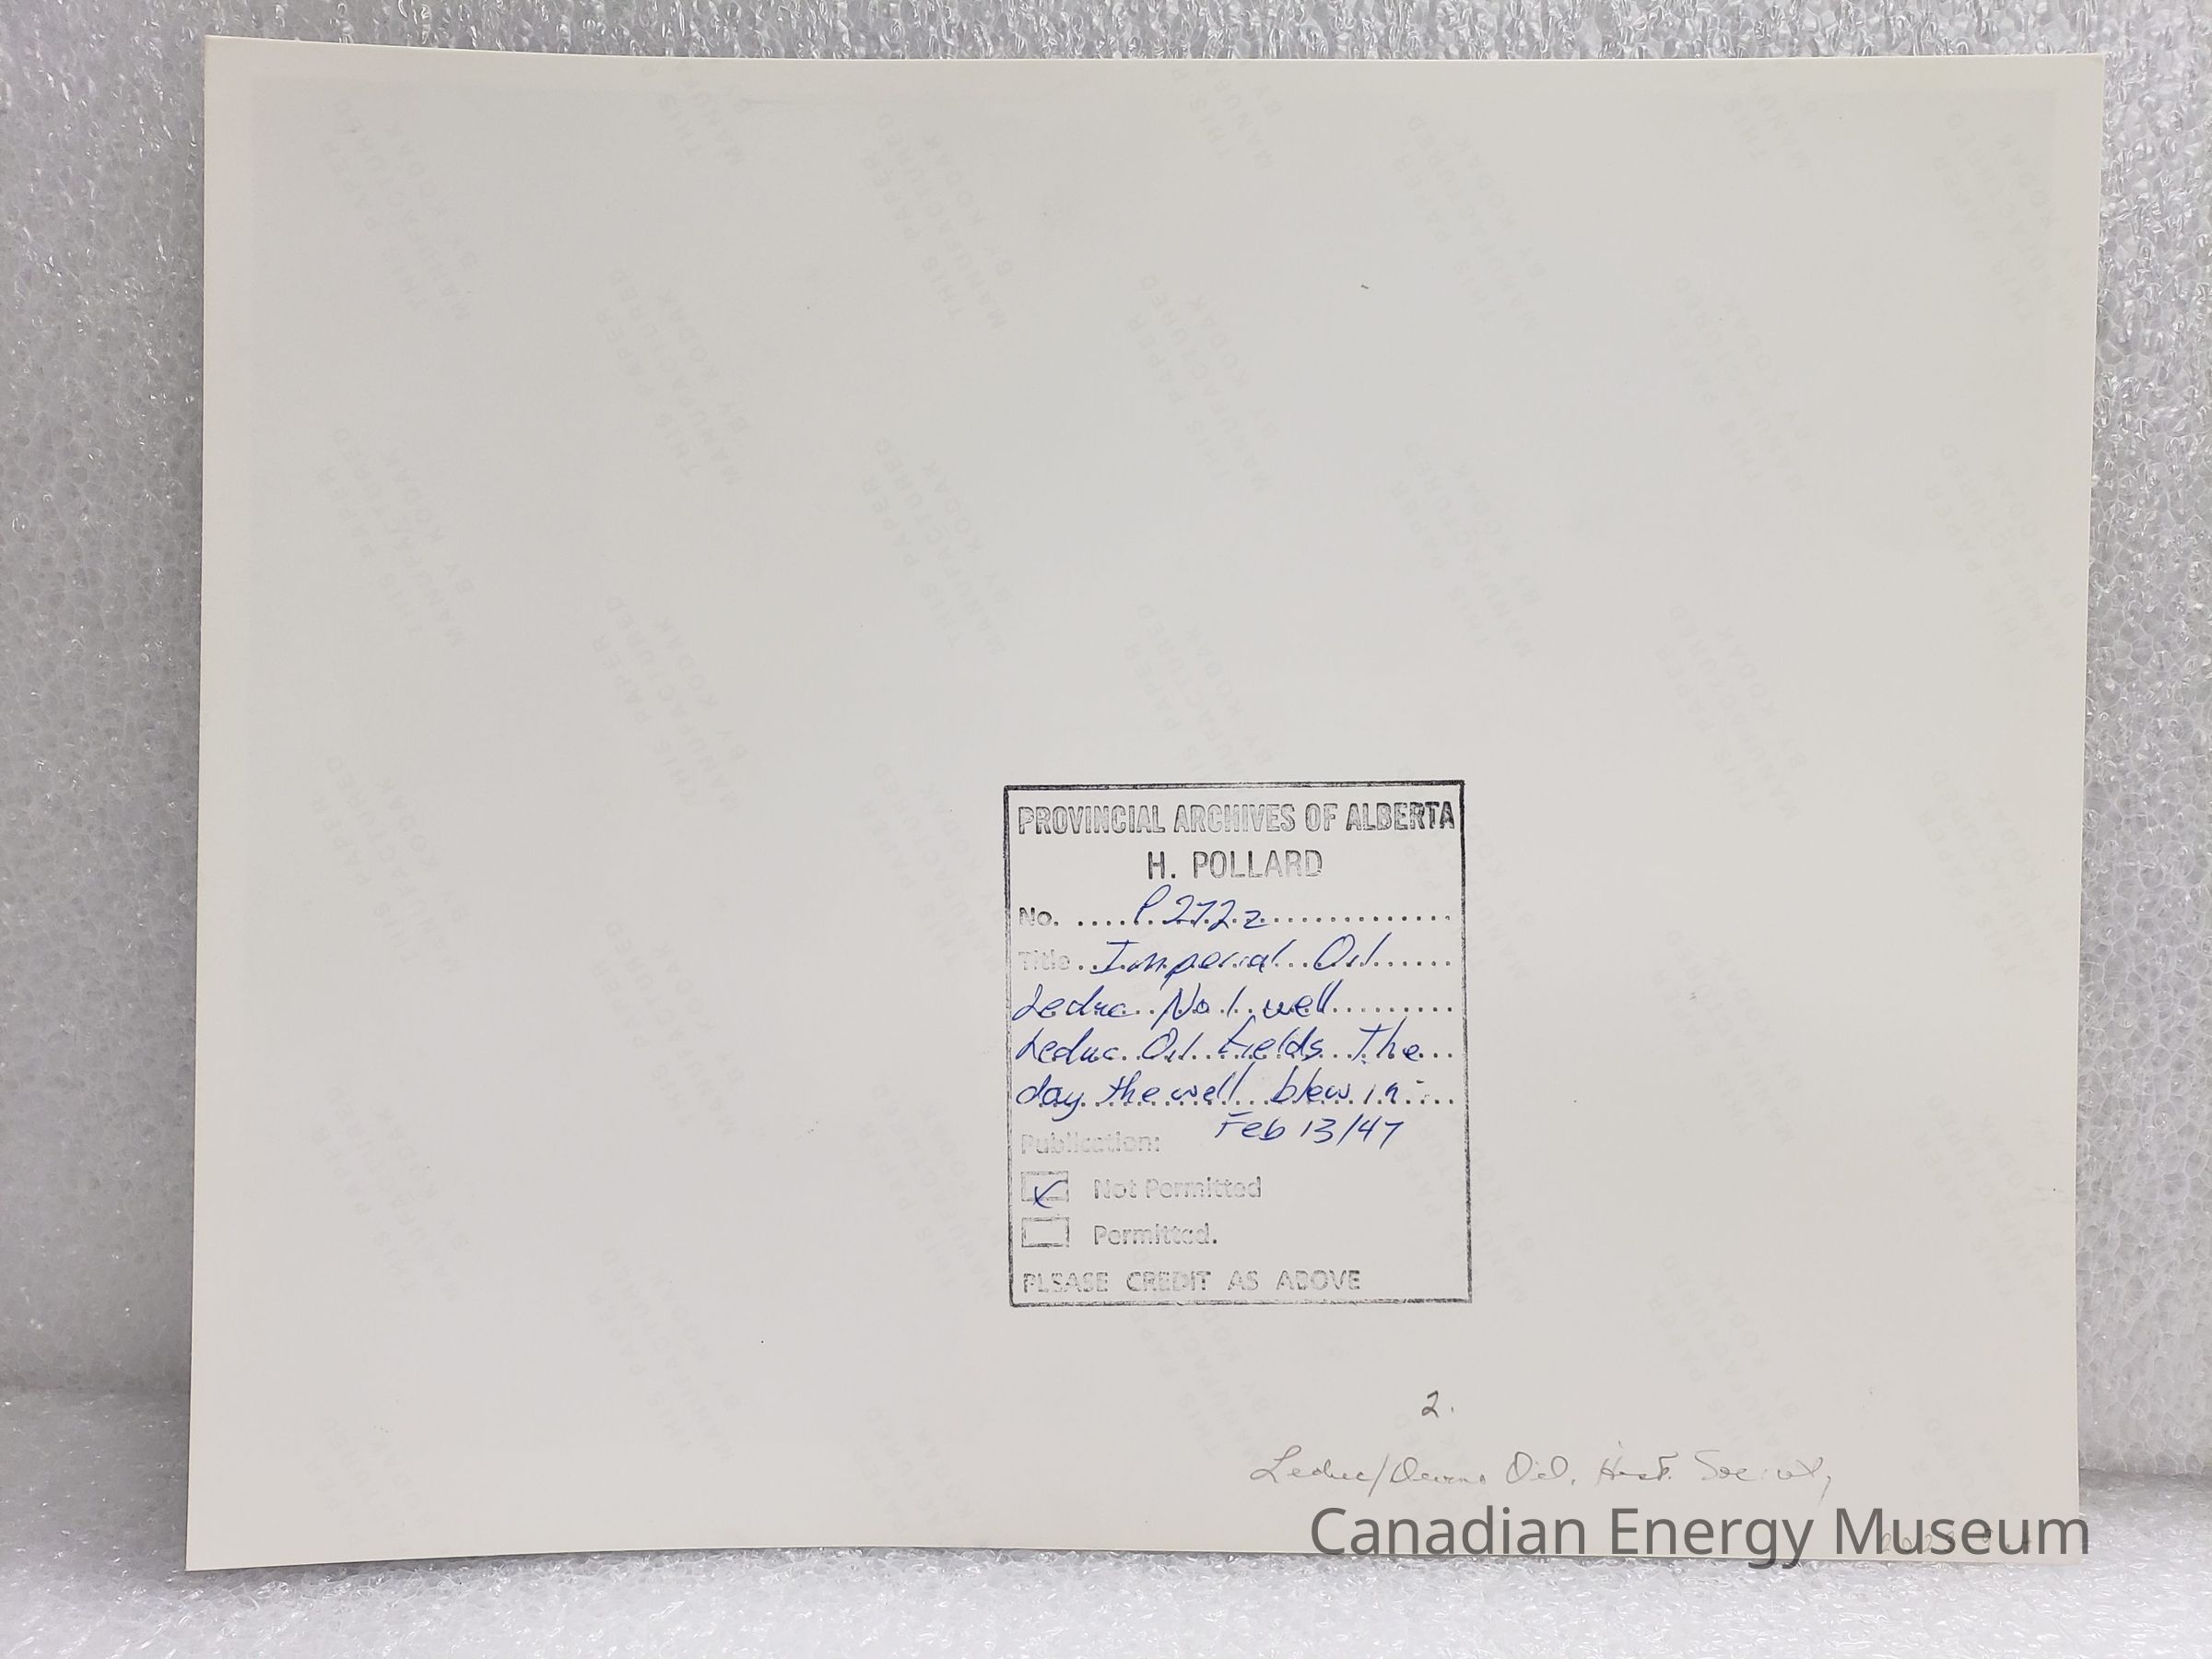 PROVINCIAL ARCHIVES OF ALBERTA
H. POLLARD
No. P.2722
Title Imperial Oil
Leduc No 1 well
Leduc Oil Fields The
day the well blew in -
Feb 13/47
Publication:
Not Permitted
Permitted.
PLEASE CREDIT AS ABOVE
2.
Leduc/Devon Oil. Hist. Society
Canadian Energy Museum
THIS PAPER
MANUFACTURED
BY KODAK